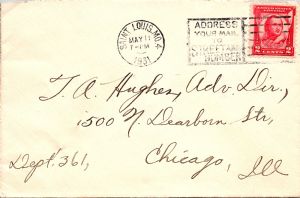 SAINT LOUIS, MO. 4
MAY 11
7-PM
1931
ADDRESS
YOUR MAIL
TO
STREET AND
NUMBER
2 2
T. A. Hughes, Adv. Dir,
1500 N. Dearborn Str,
Dept. 361,
Chicago,
Ill